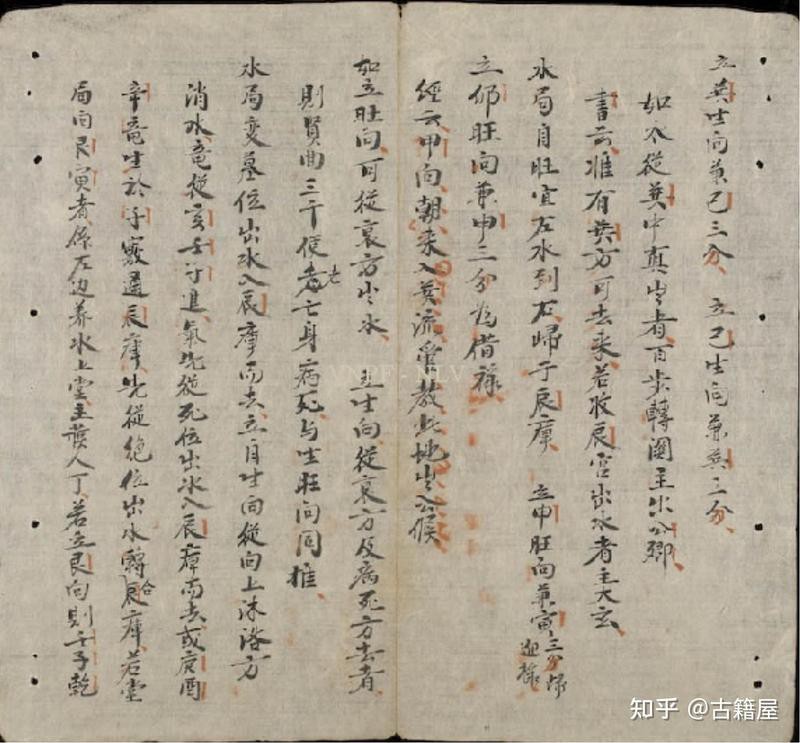 立巽生向兼巳三分 立巳生向兼巽三分
如水從巽中真出者百步轉圍主出公卿
書云惟有巽方可去来若收辰宮出水者主大玄
水局自旺宜左水到右歸于辰庫 立申旺向兼寅三分
立卯旺向兼申三分為借祿
經云甲向朝来入巽流管教此地出公侯
如立旺向可從衰方出水 立生向從衰方及病死方去者
則賢曲三千便亡身病死与生旺向同推
水局变墓位出水入辰庫而去立自生向從向上沐浴方
消水竜從亥壬子進氣先從死位出水入辰庫而去或庚酉
辛竜生於子 遇辰庫先從絶位出水轉合辰庫若堂
局向艮寅者係左边养水上堂主 人丁若立艮向則壬子乾
VNPF - NLV
知乎 @古籍屋